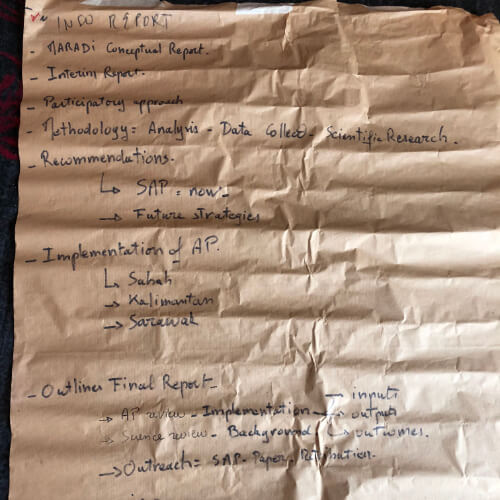 INFO REPORT
- MARADi Conceptual Report.
- Interim Report.
- Participatory approach
- Methodology = Analysis - Data Collec° - Scientific Research.
- Recommendations.
↳ SAP = now -
→ Future strategies
- Implementation of AP.
↳ Sabah
→ Kalimantan
→ Sarawak
- Outlines Final Report -
→ inputs
→ AP review - Implementation → outputs
→ Science review - Background ↳ outcomes.
→ Outreach = SAP - Paper -